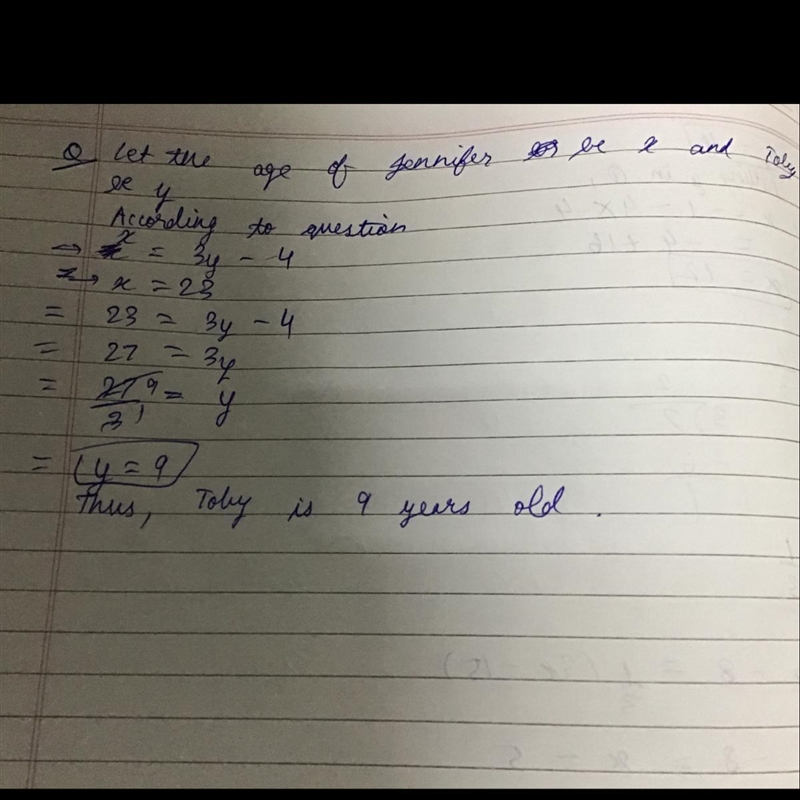 Q Let the age of Jennifer be x and Toby
be y
According to question
→ x = 3y - 4
→ x = 23
= 23 = 3y - 4
= 27 = 3y
= 27/3 = y
= y = 9
Thus, Toby is 9 years old.